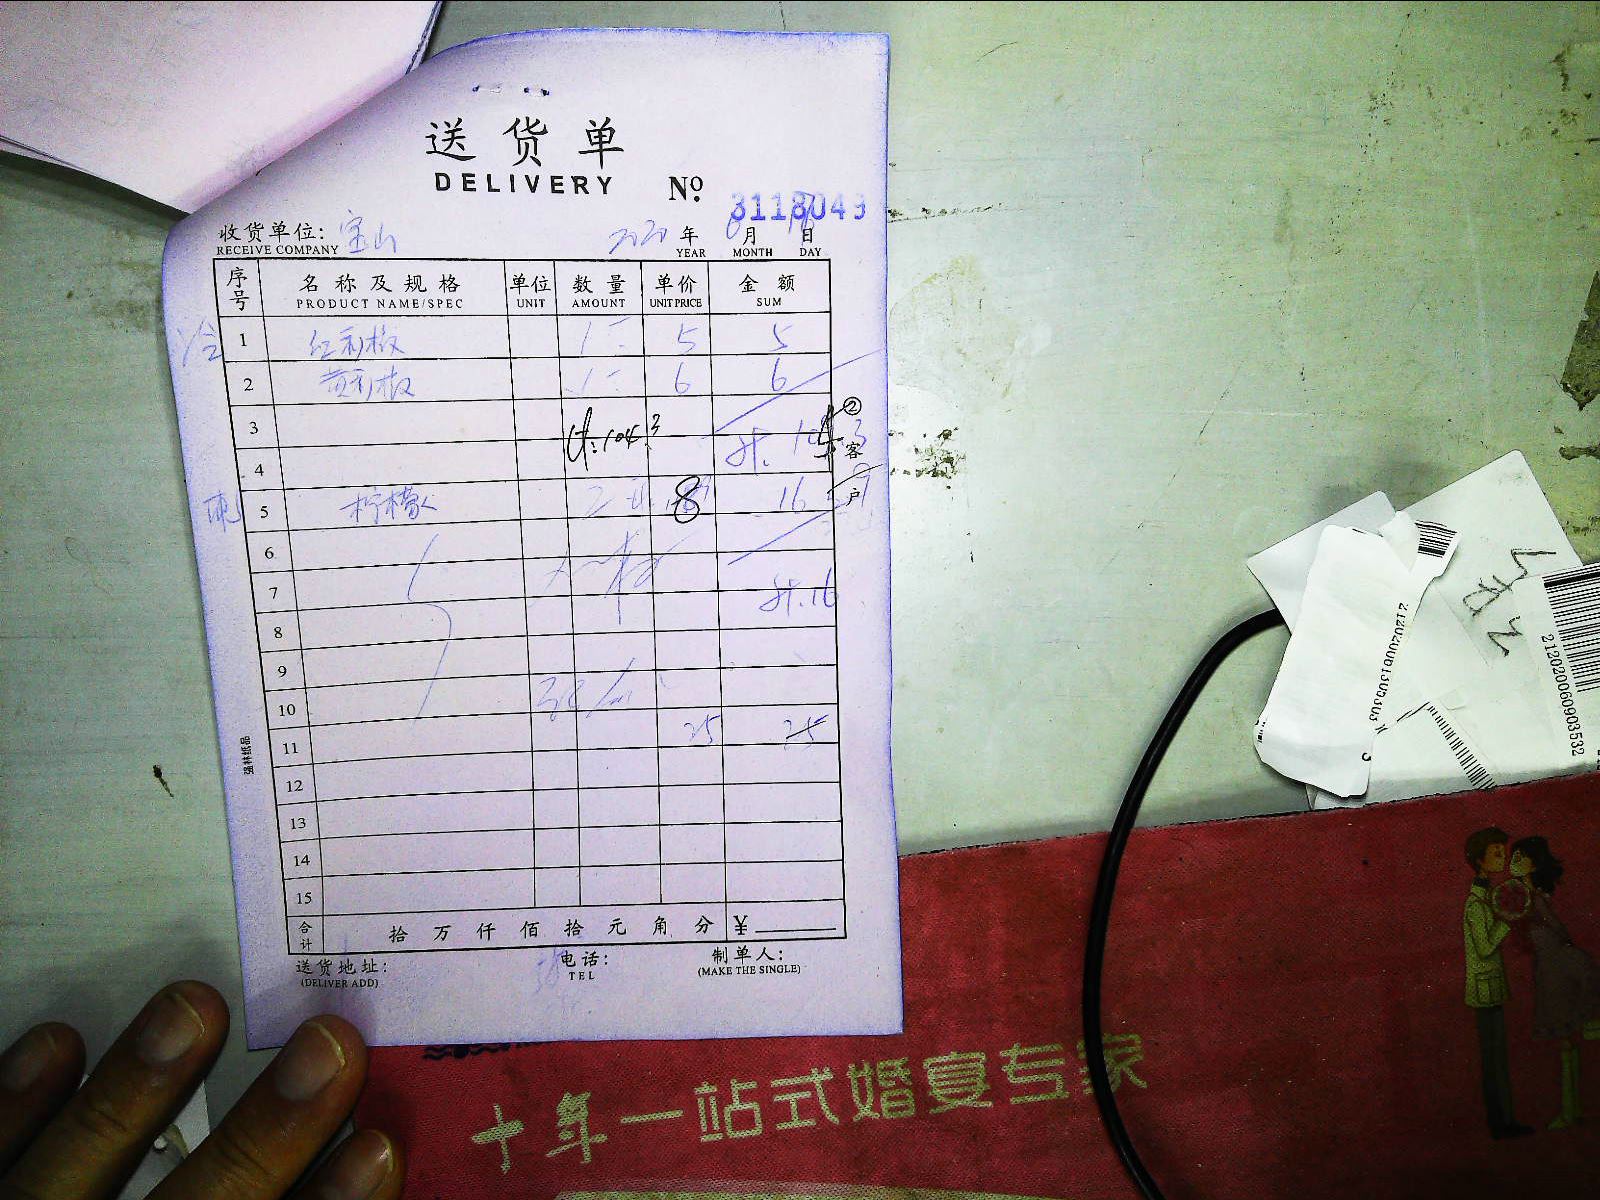 送货单
DELIVERY
№ 3118049
收货单位: 宝山
RECEIVE COMPANY
2020 年 6 月 日
YEAR MONTH DAY
序号 名称及规格 单位 数量 单价 金额
PRODUCT NAME/SPEC UNIT AMOUNT UNIT PRICE SUM
冷 1 红彩椒 1 5 5
2 黄彩椒 1 6 6
3
计:104.3
4
②客户
5 柠檬 2 8 16
6
7
计.16
8
9
10
25 25
11
12
13
14
15
合计 拾 万 仟 佰 拾 元 角 分 ¥
送货地址:
(DELIVER ADD)
电话:
TEL
制单人:
(MAKE THE SINGLE)
强林纸品
212020060903532
十年一站式婚宴专家